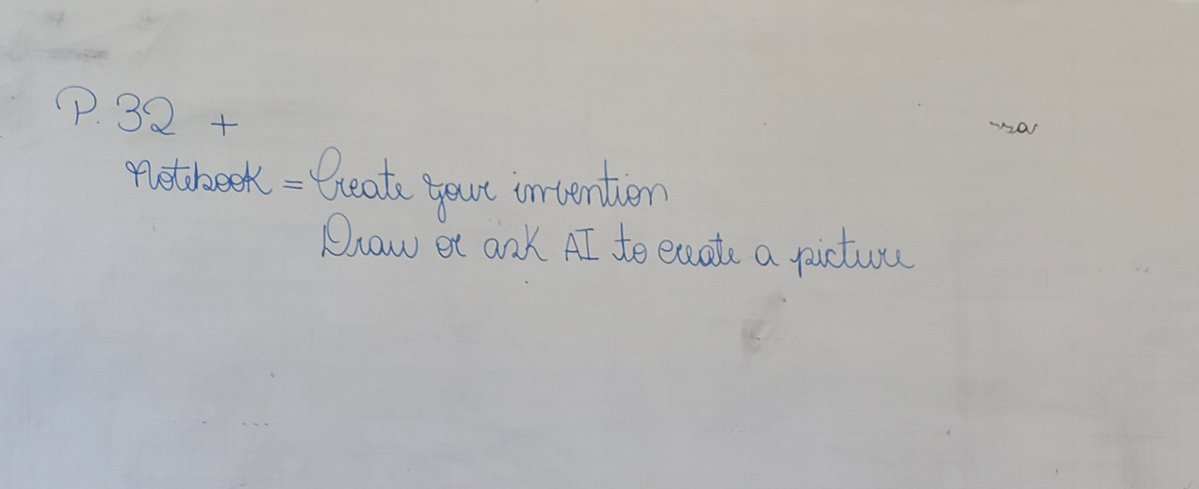 P. 32 +
Notebook = Create your invention
Draw or ask AI to create a picture